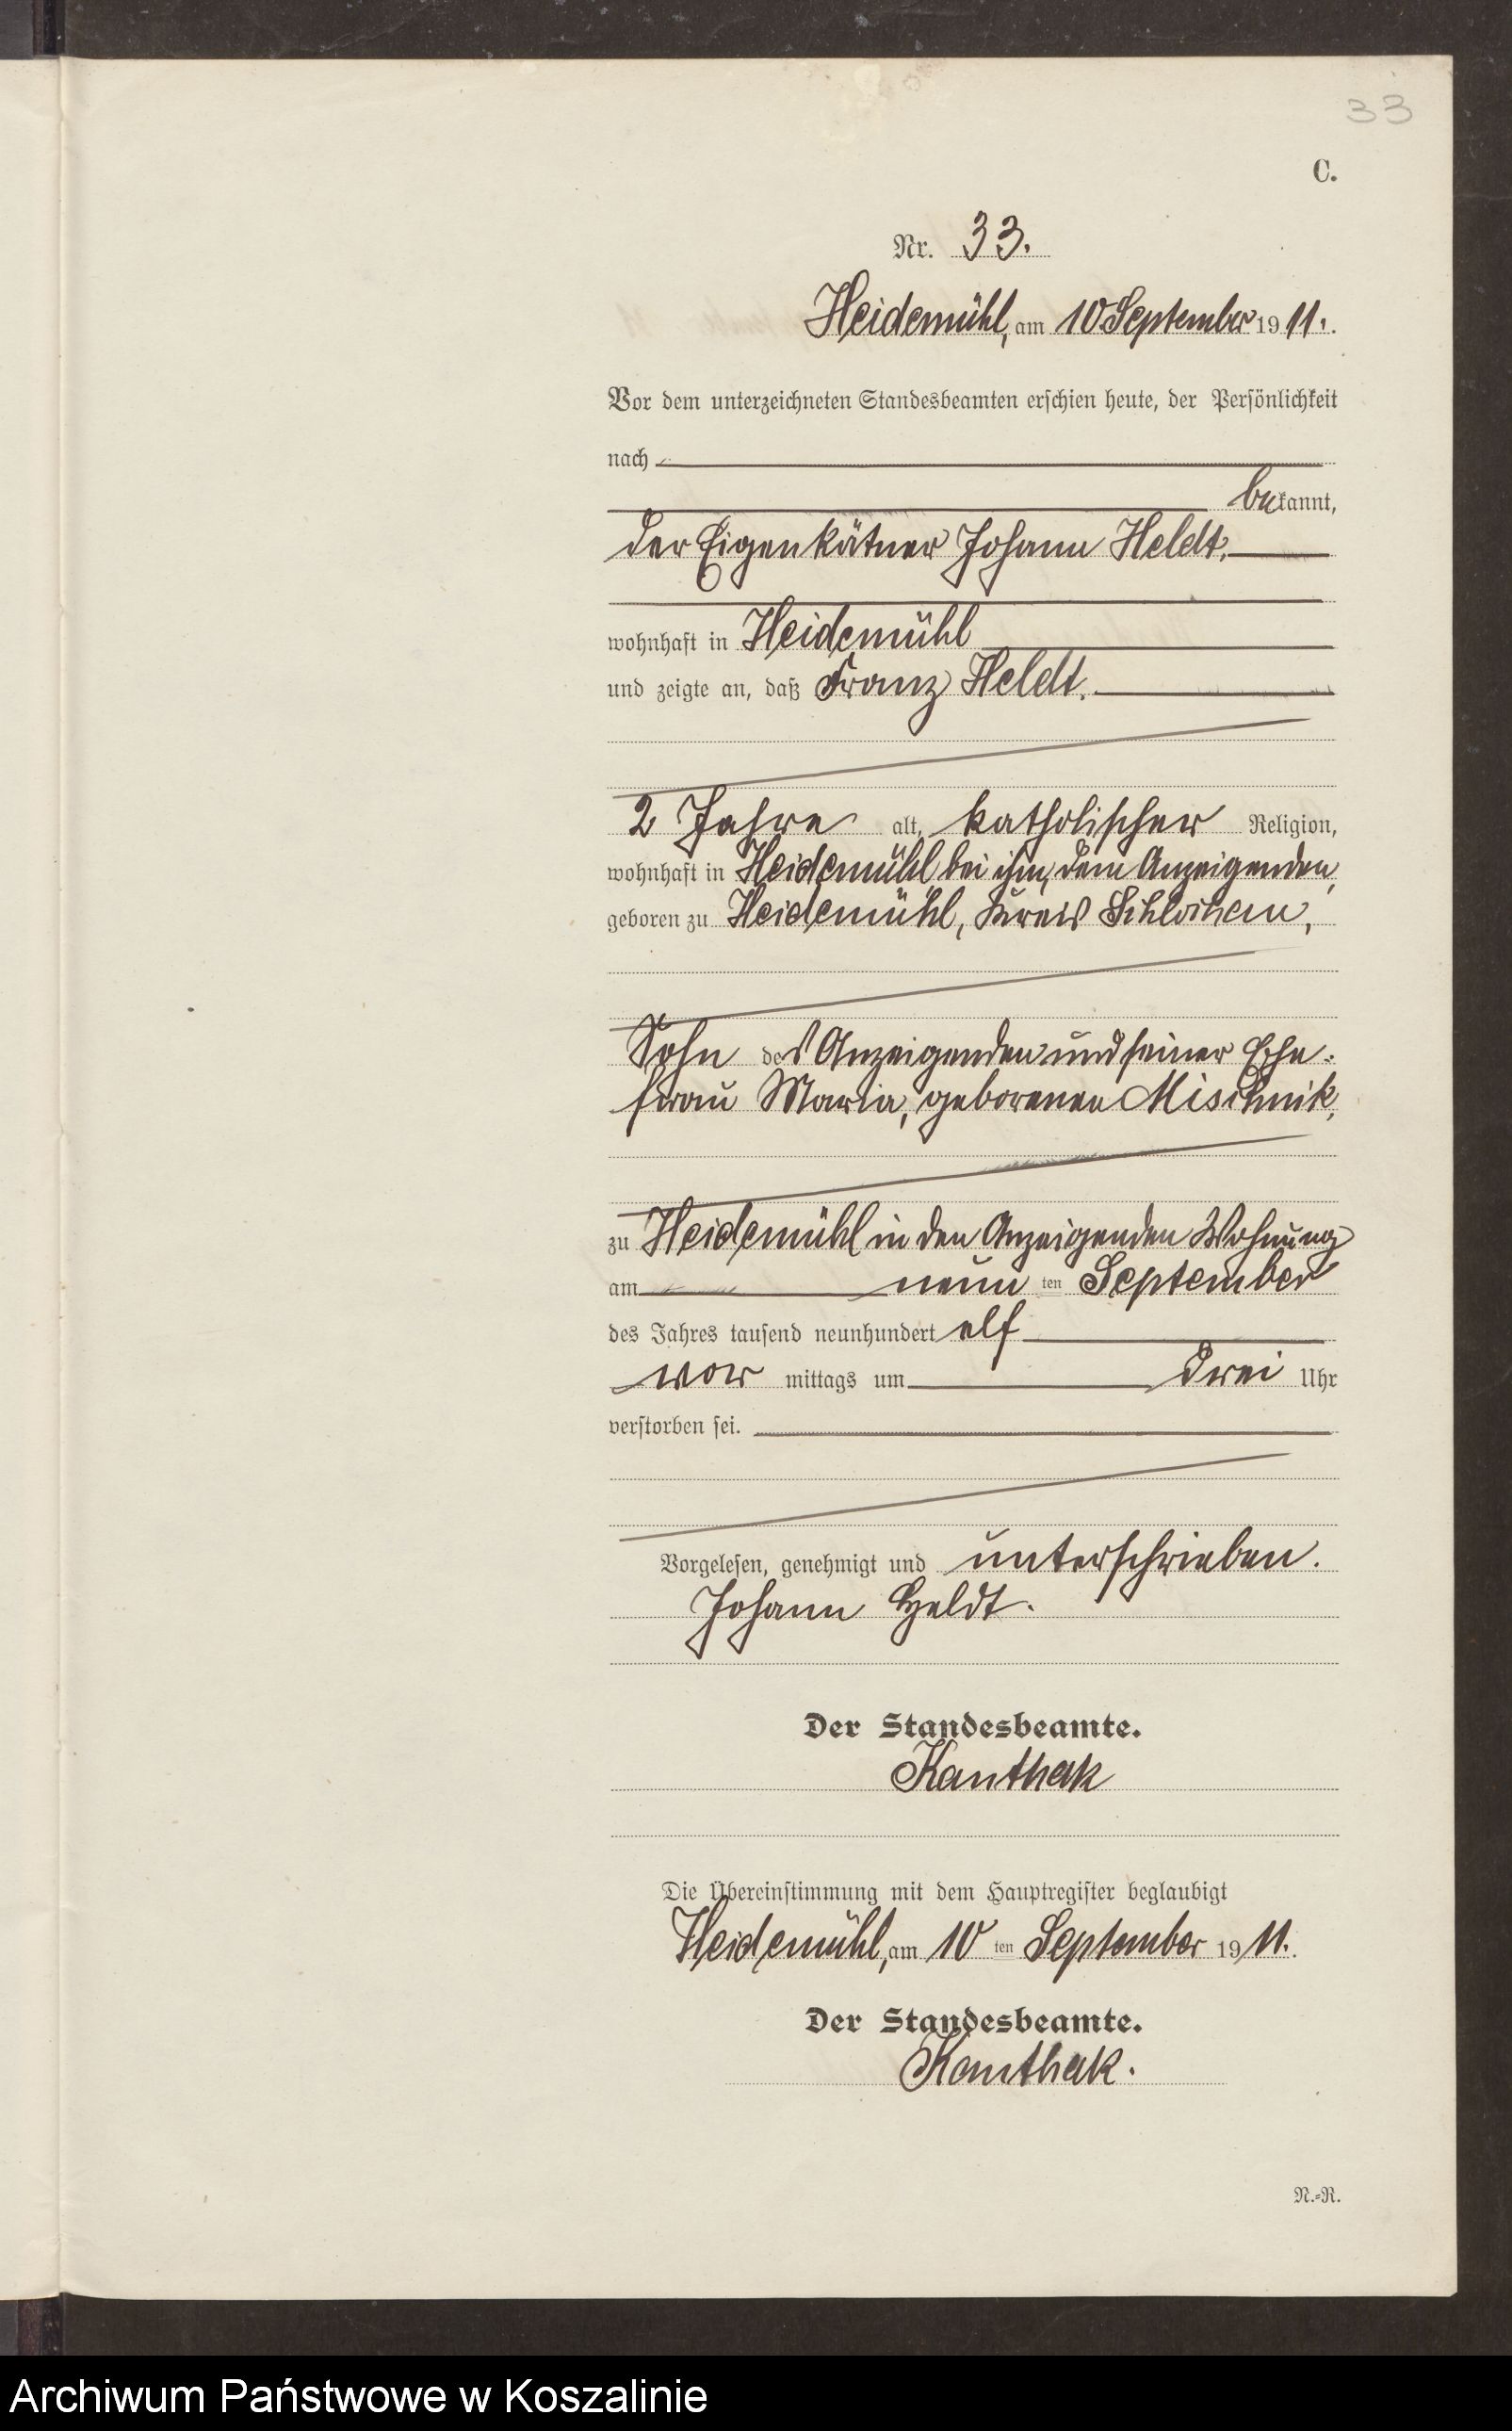 33
C.
Nr. 33.
Heidemühl, am 10 September 1911.
Vor dem unterzeichneten Standesbeamten erschien heute, der Persönlichkeit
nach
bekannt,
der Eigenkätner Johann Heldt,
wohnhaft in Heidemühl
und zeigte an, daß Franz Heldt,
2 Jahre alt, katholischer Religion,
wohnhaft in Heidemühl bei ihm, dem Anzeigenden,
geboren zu Heidemühl, Kreis Schlochau,
Sohn des Anzeigenden und seiner Ehe-
frau Maria, geborenen Mischnik,
zu Heidemühl in den Anzeigenden Wohnung
am neun ten September
des Jahres tausend neunhundert elf
vor mittags um drei Uhr
verstorben sei.
Vorgelesen, genehmigt und unterschrieben.
Johann Heldt.
Der Standesbeamte.
Kanthak
Die Übereinstimmung mit dem Hauptregister beglaubigt
Heidemühl, am 10 ten September 1911.
Der Standesbeamte.
Kanthak.
N.=R.
Archiwum Państwowe w Koszalinie